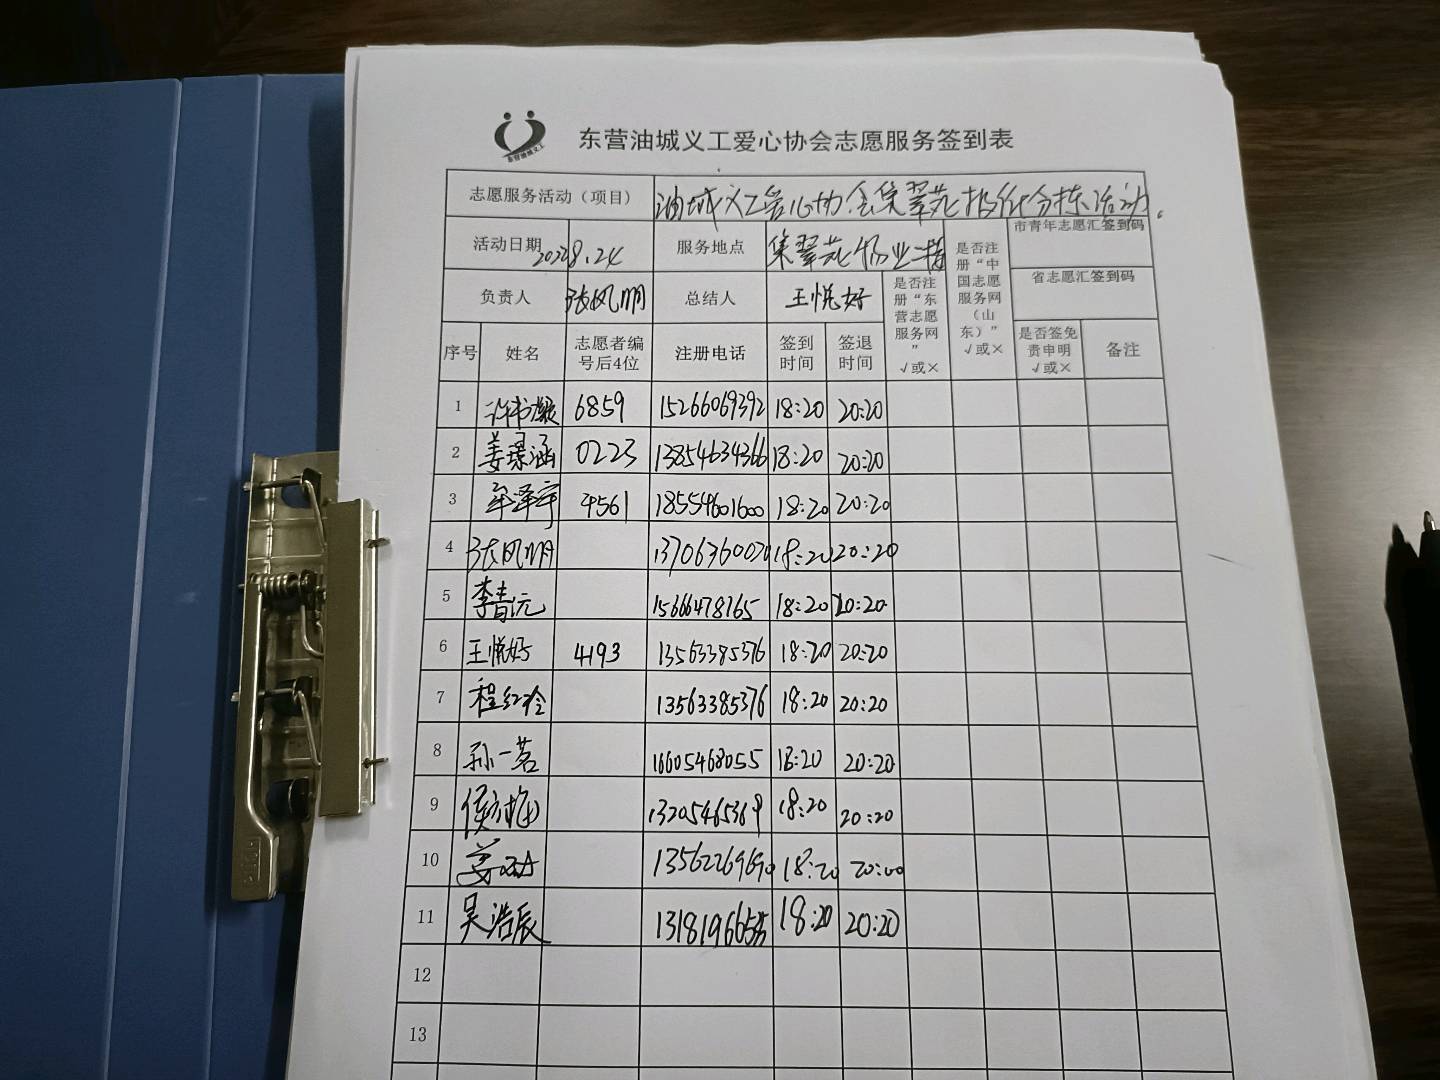 东营油城义工
东营油城义工爱心协会志愿服务签到表
志愿服务活动（项目） 油城义工爱心协会集翠苑报纸分拣活动。
活动日期 8.24 服务地点 集翠苑物业二楼 是否注册“中国志愿服务网（山东）”√或× 市青年志愿汇签到码
省志愿汇签到码
负责人 张风明 总结人 王悦好 是否注册“东营志愿服务网”√或×
序号 姓名 志愿者编号后4位 注册电话 签到时间 签退时间 是否签免责申明√或× 备注
1 许书 6859 15266069392 18:20 20:20
2 姜璟涵 0223 13854634366 18:20 20:20
3 牟泽宇 4561 18554601600 18:20 20:20
4 张风明 18:20 20:20
5 李青沅 15666478765 18:20 20:20
6 王悦好 4193 13563385376 18:20 20:20
7 程红玲 13563385376 18:20 20:20
8 孙一茗 16605468055 18:20 20:20
9 18:20 20:20
10 姜 18:20 20:00
11 吴浩辰 18:20 20:20
12
13